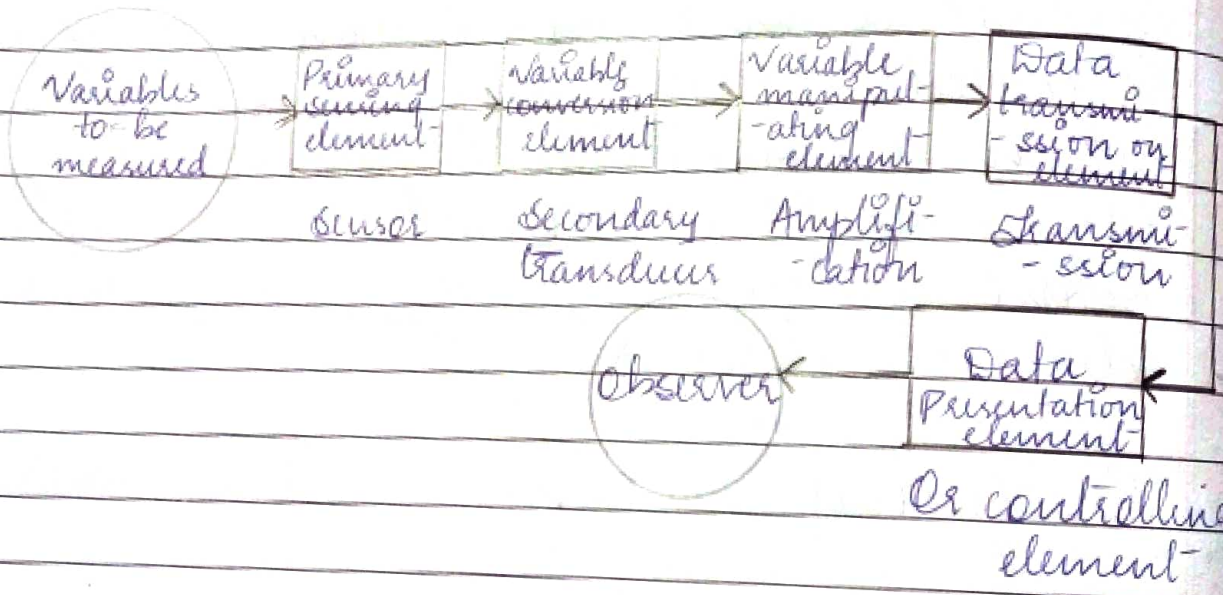 Variables
to be
measured
Primary
sensing
element
Variable
conversion
element
Variable
manipul-
-ating
element
Data
transmi-
-ssion on
element
Sensor
Secondary
transducer
Amplifi-
-cation
Transmi-
-ssion
Observer
Data
Presentation
element
Or controlling
element